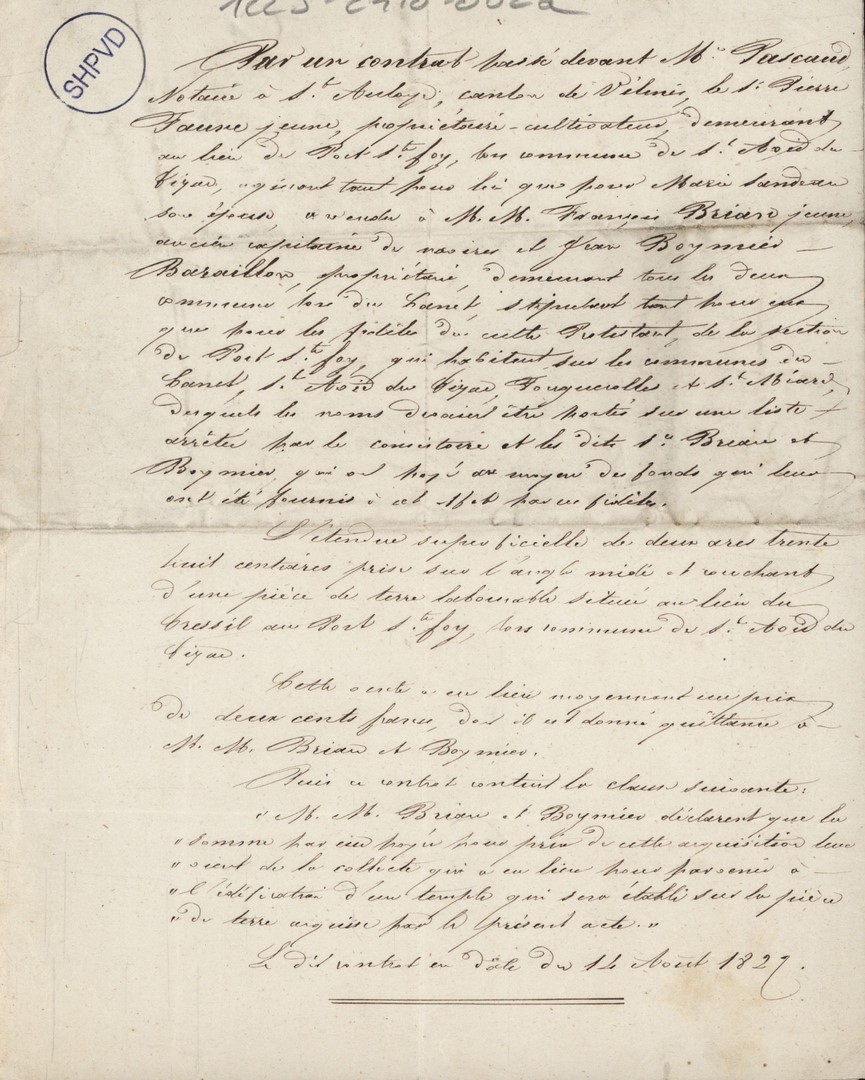 SHPVD
Par un contrat passé devant Me. Pascaud,
Notaire à St. Aulaye, canton de Vélines, le sr. Pierre
Faure jeune, propriétaire-cultivateur, demeurant
au lieu de Port Ste. foy, en commune de St. Avid du
Tizac, agissant tant pour lui que pour Marie Sandeau
son épouse, a vendu à M. M. François Brian jeune,
ancien capitaine de navires et Jean Boymier –
Baraillon, propriétaire, demeurant tous les deux
commune du Canet, stipulant tant pour eux
que pour les fidèles du culte Protestant, de la section
de Port Ste. foy, qui habitent sur les communes du –
Canet, St. Avid du Tizac, Fougueroles et St. Méard,
desquels les noms devaient être portés sur une liste –
arrêtée par le consistoire et les dits srs. Brian et
Boymier, qui ont payé au moyen des fonds qui leur
ont été fournis à cet effet par ces fidèles.
L'étendue superficielle de deux ares trente
huit centiares prise sur l'angle midi et couchant
d'une pièce de terre labourable située au lieu du
Cressil au Port Ste. foy, commune de St. Avid du
Tizac.
Cette vente a eu lieu moyennant un prix
de deux cents francs, dont il est donné quittance à –
M. M. Brian et Boymier.
Puis ce contrat contient la clause suivante:
" M. M. Brian et Boymier déclarent que la
" somme par eux payée pour prix de cette acquisition leur
" vient de la collecte qui a eu lieu pour parvenir à –
" l'édification d'un temple qui sera établi sur la pièce
" de terre acquise par le présent acte. "
Le dit contrat en date du 14 Août 1827.